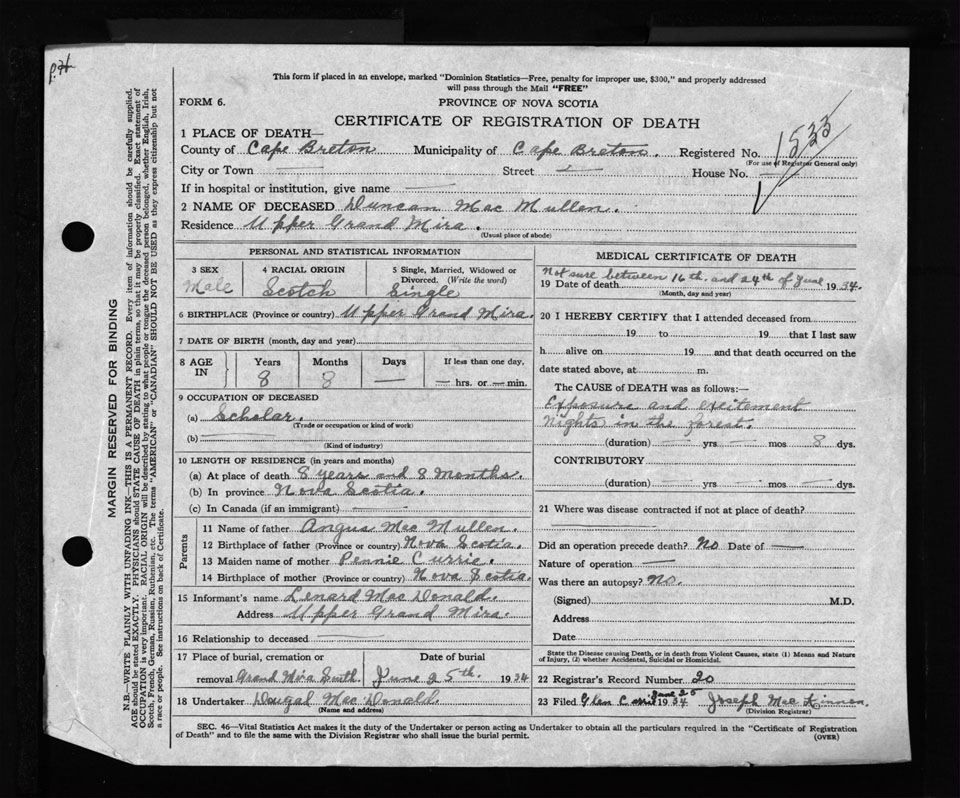 P.H.
This form if placed in an envelope, marked "Dominion Statistics—Free, penalty for improper use, $300," and properly addressed
will pass through the Mail "FREE"
FORM 6.
PROVINCE OF NOVA SCOTIA
CERTIFICATE OF REGISTRATION OF DEATH
1 PLACE OF DEATH—
County of Cape Breton Municipality of Cape Breton. Registered No. 1533
(For use of Registrar General only)
City or Town — Street — House No. —
If in hospital or institution, give name —
2 NAME OF DECEASED Duncan Mac Mullen.
Residence Upper Grand Mira.
(Usual place of abode)
PERSONAL AND STATISTICAL INFORMATION
3 SEX Male
4 RACIAL ORIGIN Scotch
5 Single, Married, Widowed or Divorced. (Write the word) Single
6 BIRTHPLACE (Province or country) Upper Grand Mira.
7 DATE OF BIRTH (month, day and year)
8 AGE IN Years 8 Months 8 Days — If less than one day, — hrs. or — min.
9 OCCUPATION OF DECEASED
(a) Scholar.
(Trade or occupation or kind of work)
(b) —
(Kind of industry)
10 LENGTH OF RESIDENCE (in years and months)
(a) At place of death 8 years and 8 Months.
(b) In province Nova Scotia.
(c) In Canada (if an immigrant) —
Parents
11 Name of father Angus Mac Mullen.
12 Birthplace of father (Province or country) Nova Scotia.
13 Maiden name of mother Pennie Currie.
14 Birthplace of mother (Province or country) Nova Scotia.
15 Informant's name Lenard Mac Donald.
Address Upper Grand Mira.
16 Relationship to deceased —
17 Place of burial, cremation or removal Grand Mira South. Date of burial June 25th. 1934
18 Undertaker Dougal Mac Donald.
(Name and address)
MEDICAL CERTIFICATE OF DEATH
Not sure between 16th. and 24th of June
19 Date of death 1934.
(Month, day and year)
20 I HEREBY CERTIFY that I attended deceased from
19 to 19, that I last saw
h alive on 19 and that death occurred on the
date stated above, at m.
The CAUSE OF DEATH was as follows:—
Exposure and excitement
Nights in the forest.
(duration) — yrs — mos 8 dys.
CONTRIBUTORY
(duration) — yrs — mos — dys.
21 Where was disease contracted if not at place of death?
Did an operation precede death? No Date of —
Nature of operation —
Was there an autopsy? No.
(Signed) M.D.
Address
Date
State the Disease causing Death, or in death from Violent Causes, state (1) Means and Nature
of Injury, (2) whether Accidental, Suicidal or Homicidal.
22 Registrar's Record Number 20
23 Filed Glen June 25 1934 Joseph Mac Kinnon.
(Division Registrar)
SEC. 46—Vital Statistics Act makes it the duty of the Undertaker or person acting as Undertaker to obtain all the particulars required in the "Certificate of Registration
of Death" and to file the same with the Division Registrar who shall issue the burial permit.
(OVER)
MARGIN RESERVED FOR BINDING
N.B.—WRITE PLAINLY WITH UNFADING INK—THIS IS A PERMANENT RECORD. Every item of information should be carefully supplied.
AGE should be stated EXACTLY. PHYSICIANS should STATE CAUSE OF DEATH in plain terms, so that it may be properly classified. Exact statement of
OCCUPATION is very important. RACIAL ORIGIN will be described by stating to what people or tongue the deceased person belonged, whether English, Irish,
Scotch, French, German, Russian, Ruthenian, etc. The terms "AMERICAN" or "CANADIAN" SHOULD NOT BE USED as they express citizenship but not
a race or people. See instructions on back of Certificate.